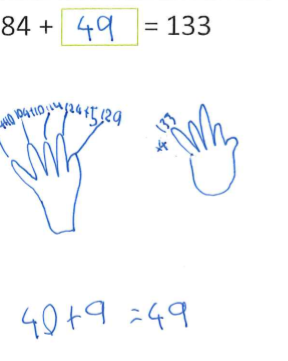 84 + 49 = 133
+10 104 +10 114 124 +5 129
133
+4
40+9 = 49